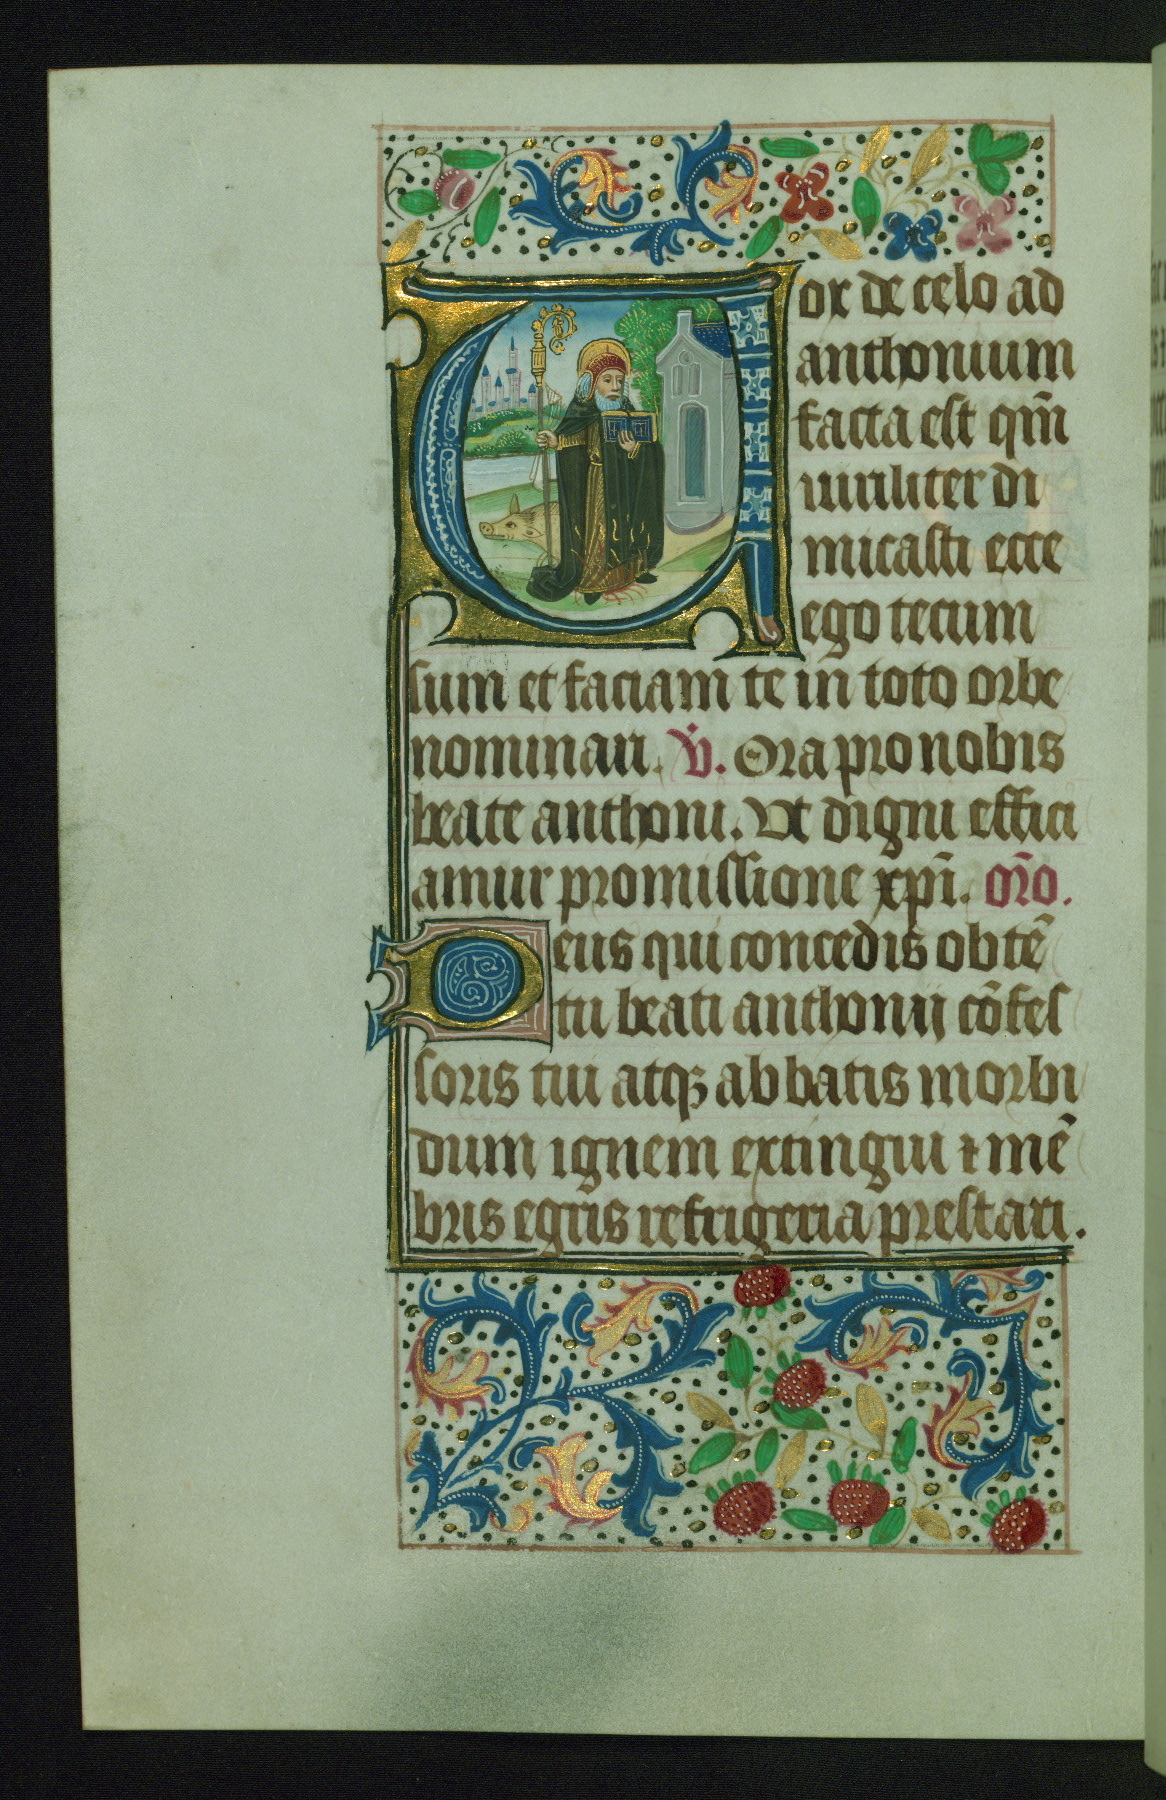 Vox de celo ad
anthonium
facta est qm̄
uiriliter di
micasti ecce
ego tecum
sum et faciam te in toto orbe
nominari. V̇. Ora pro nobis
beate anthoni. Vt digni effici
amur promissione xp̄i. or̄o.
Deus qui concedis obtē
tu beati anthonij cōfes
soris tui atqꝫ abbatis morbi
dum ignem extingui ⁊ mē
bris egris refrigeria prestari.